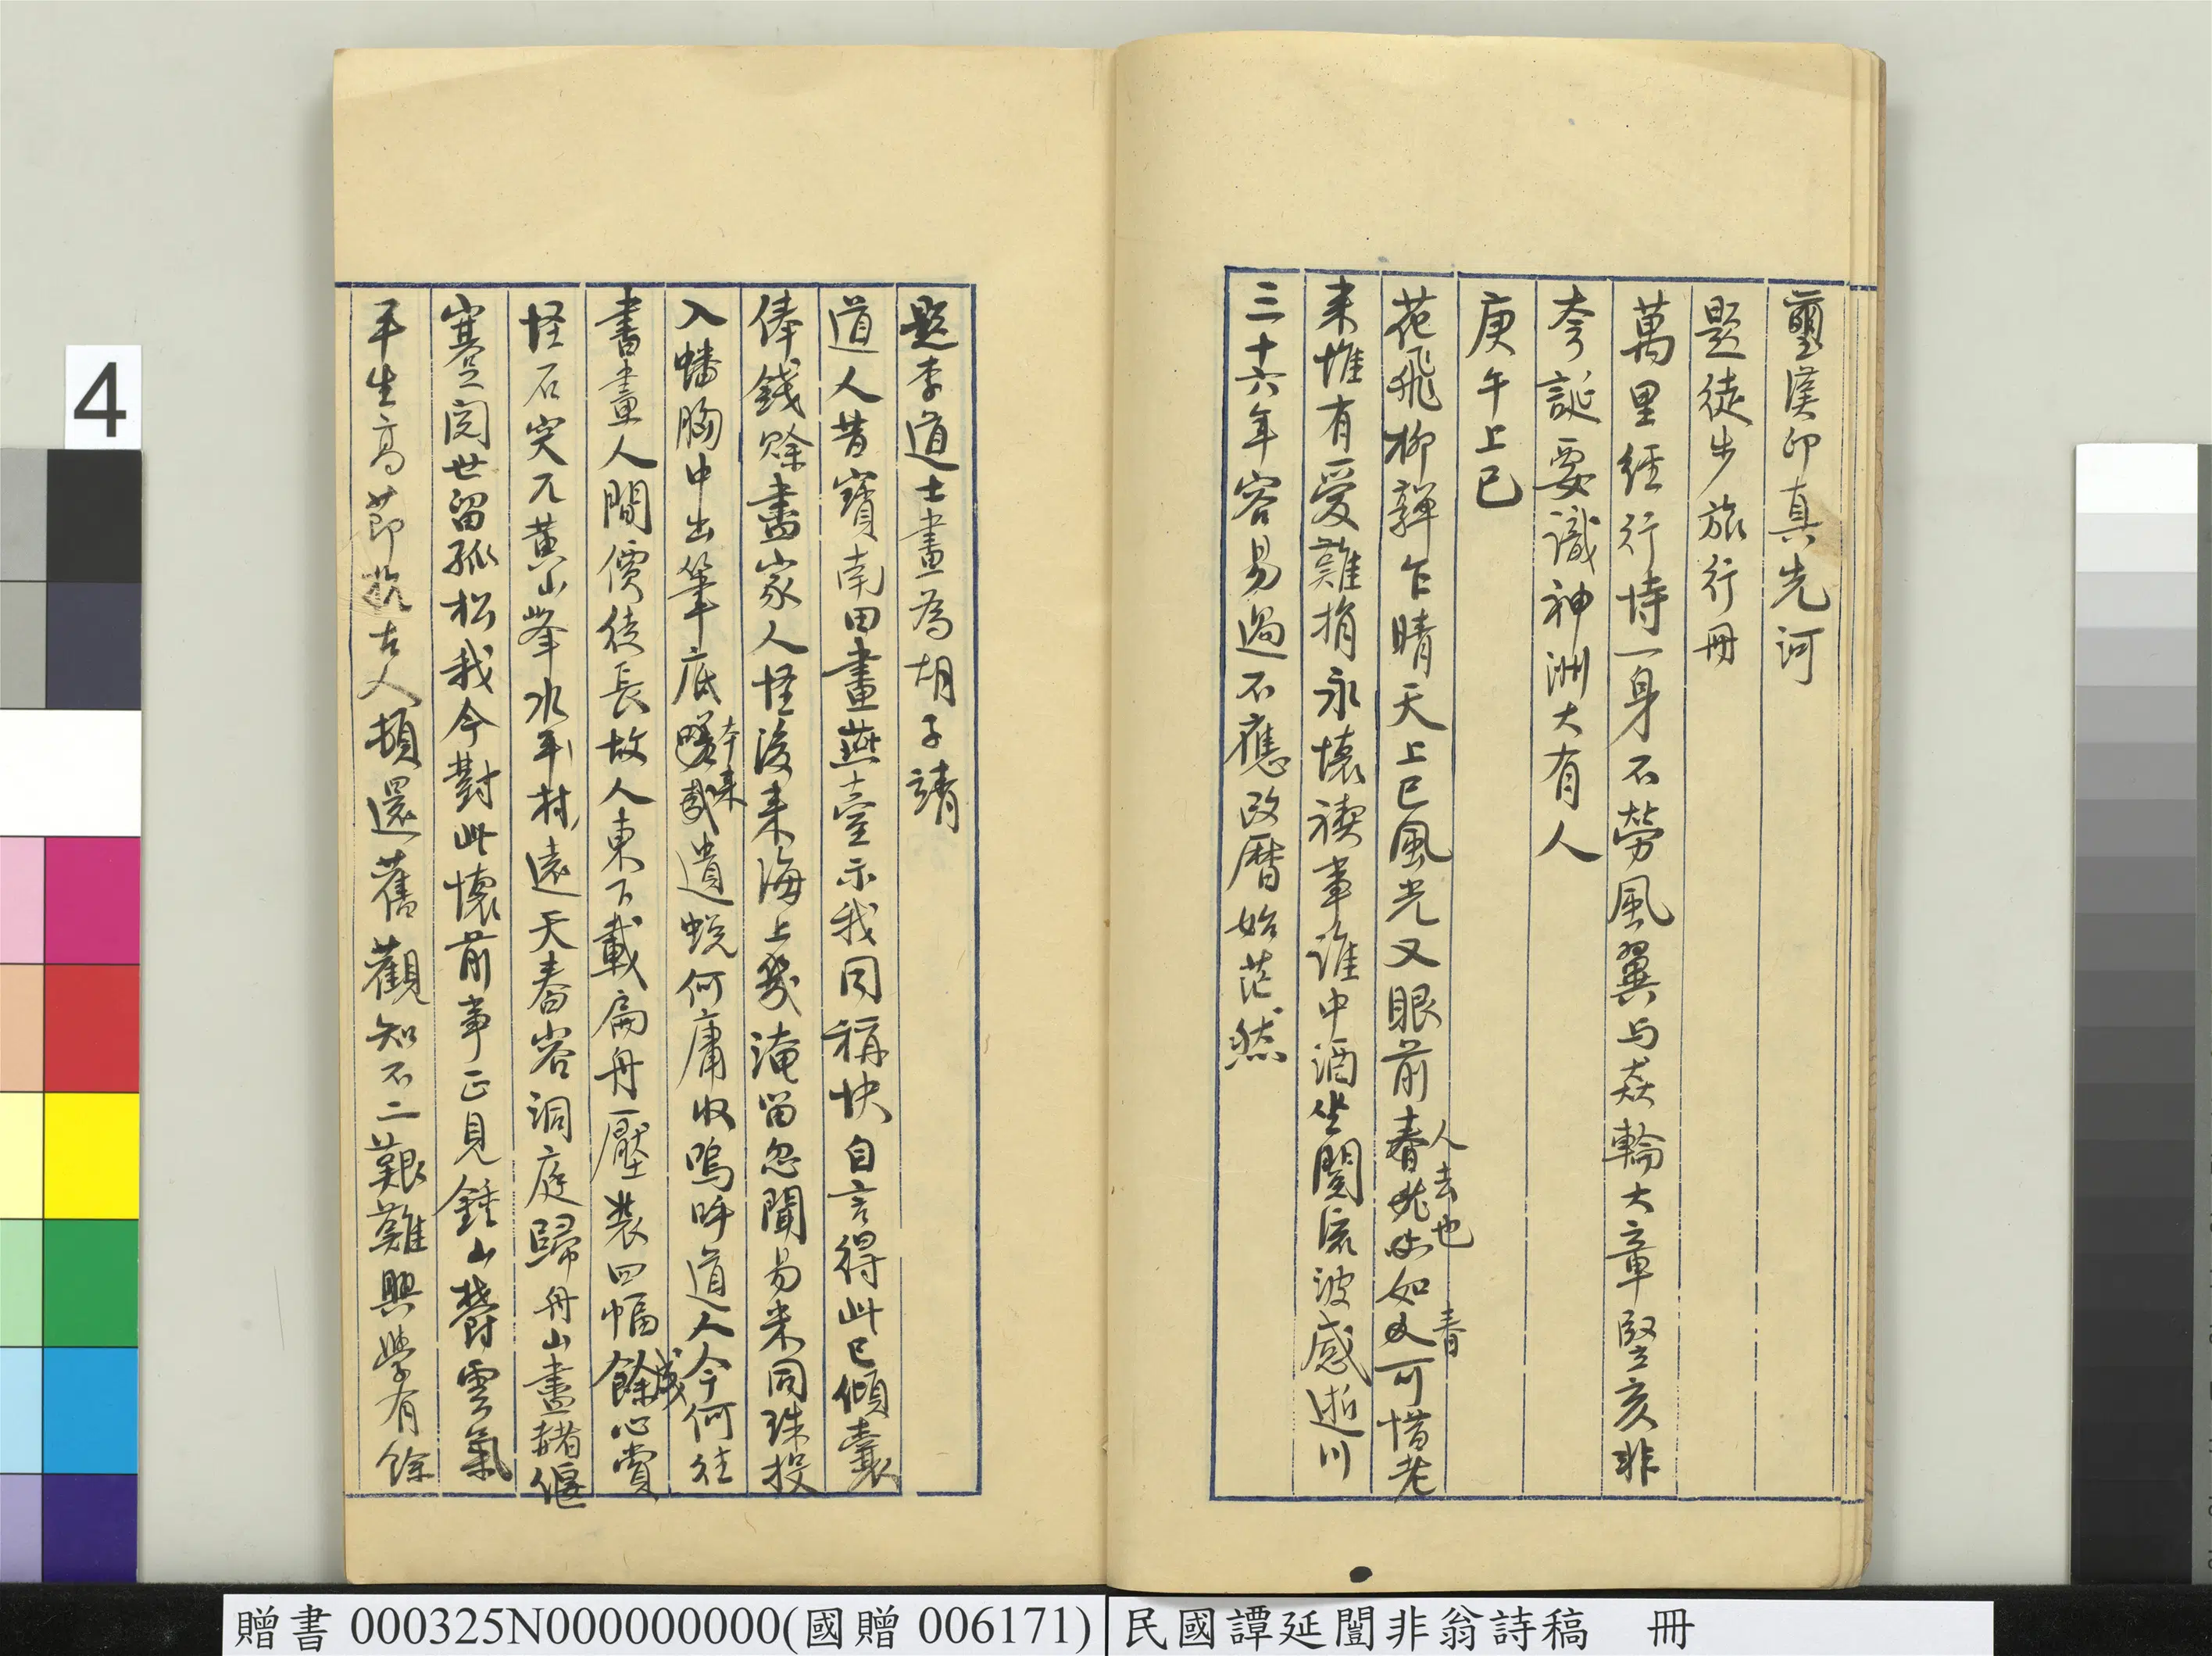 璽漢印真先河
題徒步旅行冊
萬里經行恃一身不勞風翼与猋輪大章豎亥非
夸誕要識神洲大有人
庚午上巳
花飛柳嚲乍晴天上巳風光又眼前春如可惜老
人去也
春
来惟有愛難捐永懷禊事誰中酒坐閱流波感逝川
三十六年容易過不應改曆始茫然
題李道士畫為胡子靖
道人昔寶南田畫燕臺示我同稱快自言得此已傾囊
俸錢賒畫家人怪後来海上幾淹留忽聞易米同珠投
入蟠胸中出筆底遺蛻何庸收嗚呼道人今何往
本来
書畫人間價徒長故人東下載扁舟壓裝四幅餘心賞
盛
怪石突兀黃山峯水平村遠天春容洞庭歸舟山盡赭偃
蹇閱世留孤松我今對此懷前事正見鍾山鬱雲氣
平生高節抗古人頓還舊觀知不二艱難興學有餘
4
贈書 000325N000000000(國贈 006171)
民國譚延闓非翁詩稿 冊